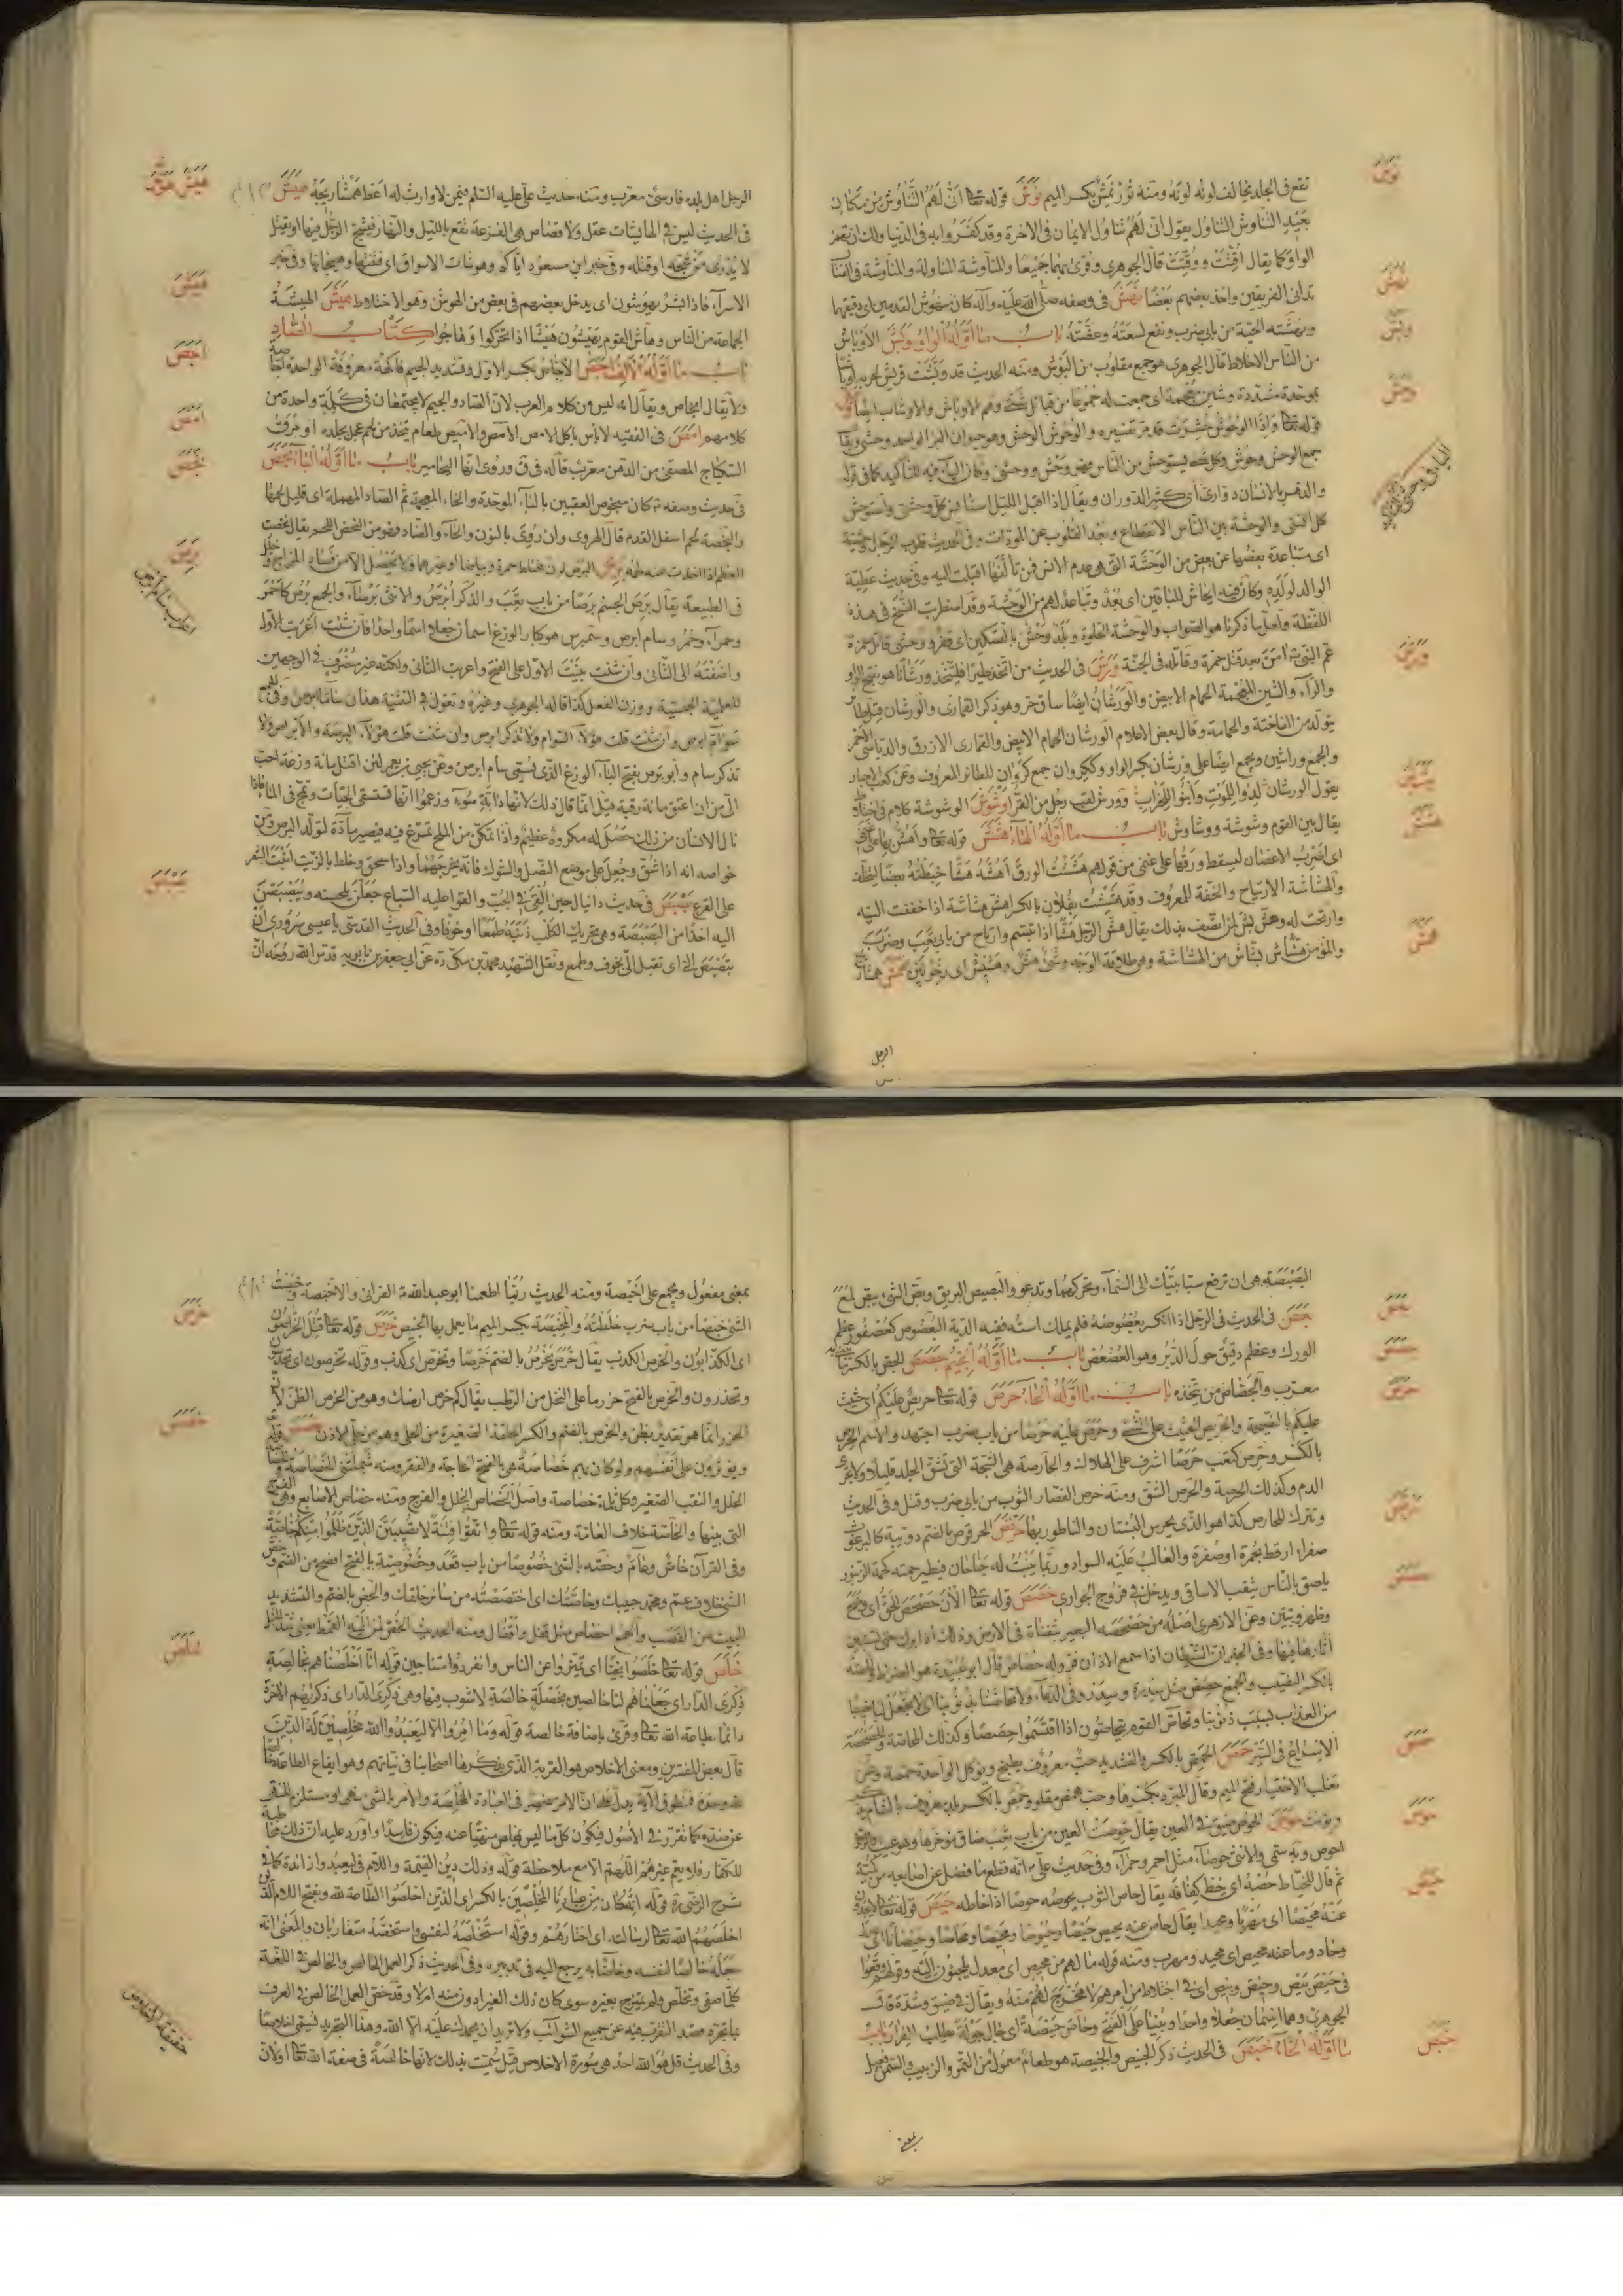 نوش
تقع فى الجلد يخالف لونه لونه ومنه ثور نمش بكسر الميم نوش قوله تعا انى لهم التناوش من مكان
بعيد التناوش التناول يقول انى لهم تناول الايمان فى الاخرة وقد كفروا به فى الدنيا ولك ان تهمز
الواو كما يقال اقتت ووقتت قال الجوهرى وقرئ بهما جميعا والمناوشة المناولة والمناوشة فى القتال
تدانى الفريقين واخذ بعضهم بعضا نهش فى وصفه صلى الله عليه وآله كان منهوش القدمين اى دقيقهما
ونهشته الحية من بابى ضرب ونفع لسعته وعضته باب ما اوله الواو وبش الاوباش
من الناس الاخلاط قال الجوهرى هو جمع مقلوب من البوش ومنه الحديث قد وبشت قريش لحربه اوباشا
بموحدة مشددة وشين معجمة اى جمعت له جموعا من قبائل شتى وهم الاوباش والاوشاب ايضا وحش
قوله تعا واذا الوحوش حشرت قد مر تفسيره والوحوش الوحش وهو حيوان البر الواحد وحشى ويقال
جمع الوحش وحوش وكل شئ يستوحش من الناس فهو وحش ووحشى وكان الياء فيه للتأكيد كما فى قوله
والدهر بالانسان دوارى اى كثير الدوران ويقال اذا اقبل الليل استأنس كل وحشى واستوحش
كل انسى والوحشة بين الناس الانقطاع وبعد القلوب عن المودات وفى الحديث قلوب الرجال وحشية
اى متباعدة بعضها عن بعض من الوحشة التى هى عدم الانس فمن تألفها اقبلت اليه وفى حديث عطية
الوالد لولده وكان فيه ايحاش للباقين اى بعد وتباعد لهم من الوحشة وقد اضطربت النسخ فى هذه
اللفظة ولعل ما ذكرنا هو الصواب والوحشة الخلوة وبلد وحش بالتسكين اى قفر ووحشى قاتل حمزة
عم النبى ص امن بعد قتل حمزة وقاتله فى الجنة ورش فى الحديث من اتخذ طيرا فليتخذ ورشانا هو بفتح الواو
والراء والشين المعجمة الحمام الابيض والورشان ايضا ساق حر وهو ذكر القمارى والورشان قيل طائر
يتولد من الفاختة والحمامة وقال بعض الاعلام الورشان الحمام الابيض والقمارى الازرق والدباسى الاحمر
والجمع وراشين ويجمع ايضا على ورشان بكسر الواو وككروان جمع كروان للطائر المعروف وعن كعب الاحبار
يقول الورشان لدوا للموت وابنوا للخراب وورش لقب رجل من القراء وشوش الوشوشة كلام فى اختلاط
يقال بين القوم وشوشة ووشاوش باب ما اوله الهاء هشش قوله تعا واهش بها على غنمى
اى اضرب الاغصان ليسقط ورقها على غنمى من قولهم هششت الورق اهشه هشا خبطته بعصا ليتحات
والهشاشة الارتياح والخفة للمعروف وقد هششت بفلان بالكسر اهش هشاشة اذا خففت اليه
وارتحت له وهش بش لمن اتصف بذلك يقال هش الرجل هشا اذا تبسم وارتاح من بابى تعب وضرب
والمؤمن هشاش بشاش من الهشاشة وهى طلاقة الوجه وشئ هش وهشيش اى رخو لين
الرجل
نهش
وبش
وحش
ورش
وشوش
هشش
هيش هوش
الرجل اهل بلده فارسى معرب ومنه حديث على عليه السلم فيمن لا وارث له اعط همشاريجه هيش
فى الحديث ليس فى الهايشات عقل ولا قصاص هى الفزعة تقع بالليل والنهار فيشج الرجل فيها او يقتل
لا يدرى من شجه او قتله وفى خبر ابن مسعود اياكم وهوشات الاسواق اى فتنها وهيجانها وفى خبر
الاسراء فاذا بشر يهوشون اى يدخل بعضهم فى بعض من الهوش وهو الاختلاط هيش الهيشة
الجماعة من الناس وهاش القوم يهيشون هيشا اذا تحركوا وهاجوا كتاب الصاد
باب ما اوله الالف اجص الاجاص بكسر الاول وتشديد الجيم فاكهة معروفة الواحدة اجاصة
ولا يقال انجاص ويقال انه ليس من كلام العرب لان الصاد والجيم لا يجتمعان فى كلمة واحدة من
كلامهم امص فى الفقيه لا بأس باكل الامص الآمص والآميص طعام يتخذ من لحم عجل بجلده او مرق
السكباج المصفى من الدهن معرب قاله فى ق وروى انها اليحامير باب ما اوله الباء بخص
فى حديث وصفه ص كان مبخوص العقبين بالباء الموحدة والخاء المعجمة ثم الصاد المهملة اى قليل لحمهما
والبخصة لحم اسفل القدم قال الهروى وان روى بالنون والحاء والصاد فهو من النحض اللحم يقال نحضت
العظم اذا اخذت عنه لحمه برص البرص لون مختلط حمرة وبياضا او غيرهما ولا يحصل الا من فساد المزاج وخلل
فى الطبيعة يقال برص الجسم برصا من باب تعب والذكر ابرص والانثى برصاء والجمع برص كاحمر
وحمراء وحمر وسام ابرص هو كبار الوزغ اسمان جعلا اسما واحدا فان شئت اعربت الاول
واضفته الى الثانى وان شئت بنيت الاول على الفتح واعربت الثانى ولكنه غير مصروف فى الوجهين
للعلمية الجنسية ووزن الفعل كذا قاله الجوهرى وغيره وتقول فى التثنية هذان سامّا ابرص وفى الجمع
سوام ابرص وان شئت قلت هؤلاء السوام ولا تذكر ابرص وان شئت قلت هؤلاء البرصة والابارص ولا
تذكر سام وابو بريص بفتح الباء الوزغ الذى يسمى سام ابرص وعن يحيى بن يعمر لئن اقتل مائة وزغة احب
الى من ان اعتق مائة رقبة قيل انما قال ذلك لانها دابة سوء وزعموا انها تستقى الحيات وتمج فى الماء فاذا
نال الانسان من ذلك حصل له مكروه عظيم واذا تمكن من الملح تمرغ فيه فيصير مادة لتولد البرص ومن
خواصه انه اذا شق وجعل على موضع النصل والشوك فانه يخرجهما واذا سحق وخلط بالزيت انبت الشعر
على القرع بصبص فى حديث دانيال حين القى فى الجب والقوا عليه السباع جعلن يلحسنه ويبصبصن
اليه اخذا من البصبصة وهى تحريك الكلب ذنبه طمعا او خوفا وفى الحديث القدسى يا عيسى سرورى ان
تبصبص الى اى تقبل الى بخوف وطمع ونقل الشهيد محمد بن مكى ره عن ابى جعفر بن بابويه قدس الله روحه ان
هيش
اجص
امص
بخص
برص
بصبص
البصبصة هى ان ترفع سبابتيك الى السماء وتحركهما وتدعو والبصيص البريق وبص الشئ يبص لمع
بعص فى الحديث فى الرجل اذا انكسر بعصوصه فلم يملك استه ففيه الدية البعصوص كعصفور عظم
الورك وعظم دقيق حول الدبر وهو العصعص باب ما اوله الجيم جصص الجص بالكسر
معرب والجصاص من يتخذه باب ما اوله الحاء حرص قوله تعا حريص عليكم اى حثيث
عليكم بالنصيحة والحريص الحثيث على الشئ وحرص عليه حرصا من باب ضرب اجتهد والاسم الحرص
بالكسر وحرص كتعب حرصا اشرف على الهلاك والحارصة هى الشجة التى تشق الجلد قليلا ولا تجرى
الدم وكذلك الحرصة والحرص الشق ومنه حرص القصار الثوب من بابى ضرب وقتل وفى الحديث
وتترك للحارص كذا هو الذى يحرس البستان والناطور بها حرقص الحرقوص بالضم دويبة كالبرغوث
صفراء ارقط بحمرة او صفرة والغالب عليه السواد وربما ينبت له جناحان فيطير حمته كحمة الزنبور
يلصق بالناس يثقب الاساقى ويدخل فى فروج الجوارى حصص قوله تعا الآن حصحص الحق اى وضح
وظهر وتبين وعن الازهرى اصله من حصحصة البعير بثفناته فى الارض وذلك اذا برك حتى تستبين
آثارها فيها وفى الخبر ان الشيطان اذا سمع الاذان فر وله حصاص قال ابو عبيدة هو الضراط والحصة
بالكسر النصيب والجمع حصص مثل سدرة وسدر وفى الدعاء ولا تحاصنا بذنوبنا اى لا تجعل لنا نصيبا
من العذاب بسبب ذنوبنا وتحاص القوم يتحاصون اذا اقتسموا حصصا وكذلك المحاصة والحصحصة
الاسراع فى السير حمص الحمص بالكسر والتشديد حب معروف يطبخ ويؤكل الواحدة حمصة وعن
ثعلب الاختيار فتح الميم وقال المبرد بكسرها وحب محمص مقلو وحمص بالكسر بلد معروف بالشام يذكر
ويؤنث حوص الحوص ضيق فى العين يقال حوصت العين من باب تعب ضاق مؤخرها وهو عيب فالرجل
احوص وبه سمى والانثى حوصاء مثل احمر وحمراء وفى حديث على ع انه قطع ما فضل عن اصابعه من كميه
ثم قال للخياط حصه اى خط كفافه يقال حاص الثوب يحوصه حوصا اذا خاطه حيص قوله تعا لا يجدون
عنه محيصا اى مهربا ومحيدا يقال حاص عنه يحيص حيصا وحيوصا ومحيصا ومحاصا وحيصانا اى عدل
وحاد وما عنه محيص اى محيد ومهرب ومنه قوله ما لهم من محيص اى معدل يلجئون اليه وقولهم وقعوا
فى حيص بيص وحيص وبيص اى فى اختلاط من امرهم لا مخرج لهم منه ويقال فى ضيق وشدة قال
الجوهرى وهما اسمان جعلا واحدا وبنيا على الفتح وحاص حيصة اى جال جولة يطلب الفرار باب
ما اوله الخاء خبص فى الحديث ذكر الخبيص والخبيصة هو طعام معمول من التمر والزبيب والسمن فعيل
بعص
جصص
حرص
حرقص
حصص
حمص
حوص
حيص
خبص
بمعنى
بمعنى مفعول ويجمع على اخبصة ومنه الحديث ربما اطعمنا ابو عبد الله ع الفرانى والاخبصة وخبصت
الشئ خبصا من باب ضرب خلطته والمخبصة بكسر الميم ما يعمل بها الخبيص خرص قوله تعا قتل الخراصون
اى الكذابون والخرص الكذب يقال خرص يخرص بالضم خرصا وتخرص اى كذب وقوله تخرصون اى تحدسون
وتحذرون والخرص بالفتح حزر ما على النخل من الرطب يقال كم خرص ارضك وهو من الخرص الظن لان
الحزر انما هو تقدير بظن والخرص بالضم والكسر الحلقة الصغيرة من الحلى وهو من حلى الاذن خصص قوله
ويؤثرون على انفسهم ولو كان بهم خصاصة هى بالفتح الحاجة والفقر ومنه شملتنى الخصاصة
الخلل والثقب الصغير وكل ثلمة خصاصة واصل الخصاص الخلل والفرج ومنه خصاص الاصابع وهى الفرج
التى بينها والخاصة خلاف العامة ومنه قوله تعا واتقوا فتنة لا تصيبن الذين ظلموا منكم خاصة
وفى القرآن خاص وعام وخصه بالشئ خصوصا من باب قعد وخصوصية بالفتح افصح من الضم وخص
الشئ خلاف عم ومحمد حبيبك وخاصتك اى اختصصته من سائر خلقك والخص بالضم والتشديد
البيت من القصب والجمع اخصاص مثل قفل واقفال ومنه الحديث الخص لمن اليه القمط
خلص قوله تعا خلصوا نجيا اى تميزوا عن الناس وانفردوا متناجين قوله انا اخلصناهم بخالصة
ذكرى الدار اى جعلناهم لنا خالصين بخصلة خالصة لا شوب فيها وهى ذكرى الدار اى ذكراهم الاخرة
دائما بطاعة الله تعا وقرئ باضافة خالصة قوله وما امروا الا ليعبدوا الله مخلصين له الدين
قال بعض المفسرين ومعنى الاخلاص هو القربة الذى يذكرها اصحابنا فى نياتهم وهو ايقاع الطاعة خالصا
لله وحده فمنطوق الآية يدل على ان الامر منحصر فى العبادة المخلصة والامر بالشئ نهى او مستلزم للنهى
عن ضده كما تقرر فى الاصول فيكون كل ما ليس بمخلص منهيا عنه فيكون فاسدا واورد عليه ان ذلك مخاطبة
للكفار فلا يعم غيرهم اللهم الا مع ملاحظة قوله وذلك دين القيمة واللام فى ليعبدوا زائدة كما فى
شرح الرضى ره قوله انه كان من عبادنا المخلصين بالكسر اى الذين اخلصوا الطاعة لله وبفتح اللام الذين
اخلصهم الله تعا لرسالته اى اختارهم وقوله استخلصه لنفسى واستخصه متقاربان والمعنى انه
جعله خالصا لنفسه وخاصا به يرجع اليه فى تدبيره وفى الحديث ذكر العمل الخالص والخالص فى اللغة
كلما صفى وتخلص ولم يمتزج بغيره سوى كان ذلك الغير ادون منه ام لا وقد خص العمل الخالص فى العرف
بما تجرد قصد التقرب فيه عن جميع الشوائب ولا تريد ان يحمدك عليه الا الله وهذا التجريد يسمى اخلاصا
وفى الحديث قل هو الله احد هى سورة الاخلاص قيل سميت بذلك لانها خالصة فى صفة الله تعا او لان
خرص
خصص
خلص